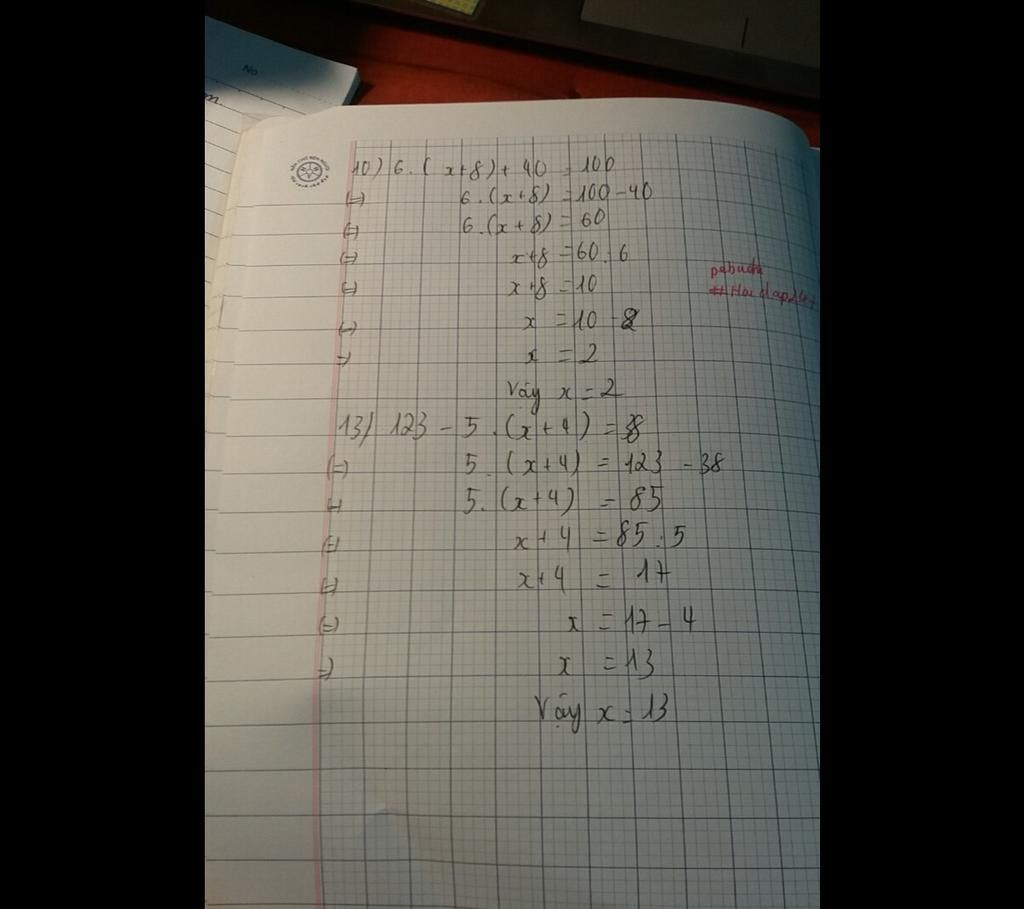 No
10) 6. (x+8) + 40 = 100
(=) 6.(x+8) = 100 - 40
(=) 6.(x+8) = 60
(=) x+8 = 60 : 6
(=) x+8 = 10
(=) x = 10 - 8
=) x = 2
Vậy x = 2
13) 123 - 5 . (x+4) = 38
(=) 5. (x+4) = 123 - 38
(=) 5. (x+4) = 85
(=) x + 4 = 85 : 5
(=) x+4 = 17
(=) x = 17 - 4
=) x = 13
Vậy x = 13